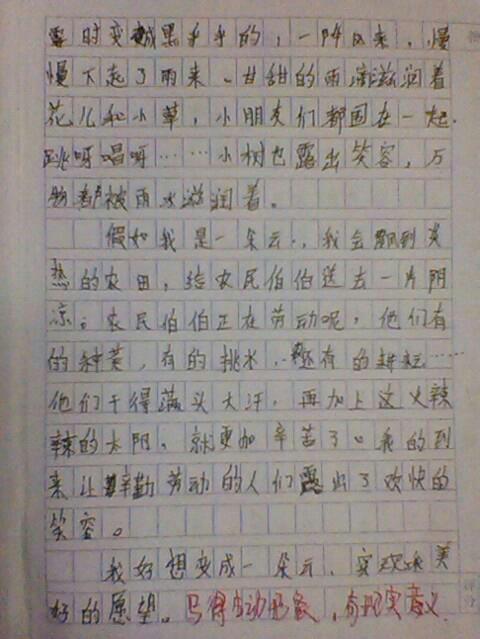 霎时变城黑乎乎的，一阵风来，慢
慢下起了雨来。甘甜的雨滴滋润着
花儿和小草，小朋友们都围在一起，
跳呀唱呀……小树也露出笑容，万
物都被雨水滋润着。
假如我是一朵云，我会飘到炎
热的农田，给农民伯伯送去一片阴
凉。农民伯伯正在劳动呢，他们有
的种菜，有的挑水，还有的耕耘……
他们干得满头大汗，再加上这火辣
辣的太阳，就更加辛苦了。我的到
来让辛勤劳动的人们露出了欢快的
笑容。
我好想变成一朵云，实现美
好的愿望。写得生动形象，有现实意义